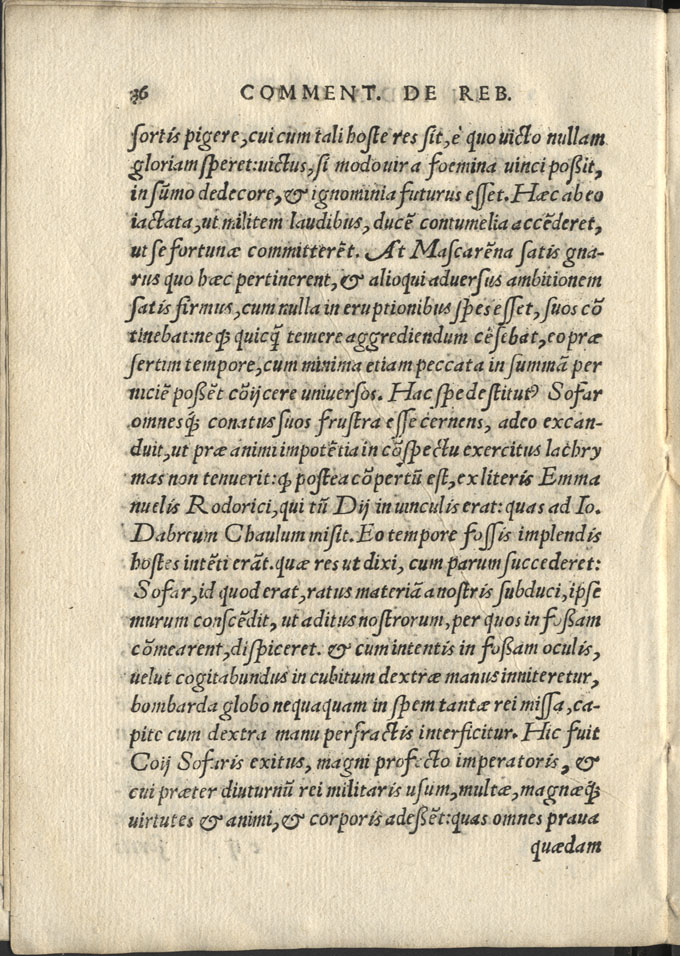 36 COMMENT. DE REB.
fortis pigere, cui cum tali hoste res sit, è quo uicto nullam
gloriam speret: uictus, si modo uir a foemina uinci poßit,
in sũmo dedecore, & ignominia futurus esset. Hæc ab eo
iactata, ut militem laudibus, ducẽ contumelia accẽderet,
ut se fortunæ committerẽt. At Mascarẽna satis gna-
rus quo hæc pertinerent, & alioqui aduersus ambitionem
satis firmus, cum nulla in eruptionibus spes esset, suos cõ
tinebat: neq; quicq̃ temere aggrediendum cẽsebat, eo præ
sertim tempore, cum minima etiam peccata in summã per
niciẽ poßẽt cõijcere uniuersos. Hac spe destitutꝰ Sofar
omnesq́; conatus suos frustra esse cernens, adeo excan-
duit, ut præ animi impotẽtia in cõspectu exercitus lachry
mas non tenuerit: q; postea cõpertũ est, ex literis Emma
nuelis Rodorici, qui tũ Dij in uinculis erat: quas ad Io.
Dabreum Chaulum misit. Eo tempore fossis implendis
hostes intẽti erãt. quæ res ut dixi, cum parum succederet:
Sofar, id quod erat, ratus materiã a nostris subduci, ipse
murum conscẽdit, ut aditus nostrorum, per quos in foßam
cõmearent, dispiceret. & cum intentis in foßam oculis,
uelut cogitabundus in cubitum dextræ manus inniteretur,
bombarda globo nequaquam in spem tantæ rei missa, ca-
pite cum dextra manu perfractis interficitur. Hic fuit
Coij Sofaris exitus, magni profecto imperatoris, &
cui præter diuturnũ rei militaris usum, multæ, magnæq́;
uirtutes & animi, & corporis adeßẽt: quas omnes praua
quædam